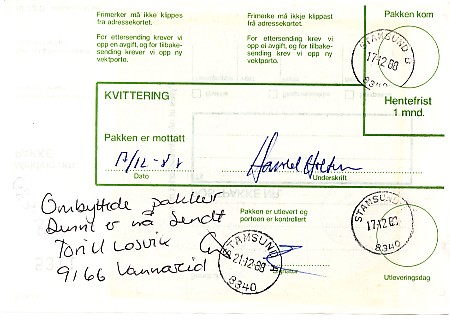 Frimerker må ikke klippes
fra adressekortet.
For ettersending krever vi
opp en avgift, og for tilbake-
sending krever vi opp ny
vektporto.
Frimerka må ikkje klippast
frå adressekortet.
For ettersending krev vi
opp ei avgift, og for tilbake-
sending krev vi opp ny
vektporto.
Pakken kom
STAMSUND
17.12.88
8340
Hentefrist
1 mnd.
KVITTERING
Pakken er mottatt
17/12-88
Dato
Underskrift
Ombyttede pakker
Denne er nå sendt
Torill Losvik
9166 Vannareid
Pakken er utlevert og
portoen er kontrollert
STAMSUND
21.12.88
8340
Signatur
STAMSUND
17.12.88
8340
Utleveringsdag